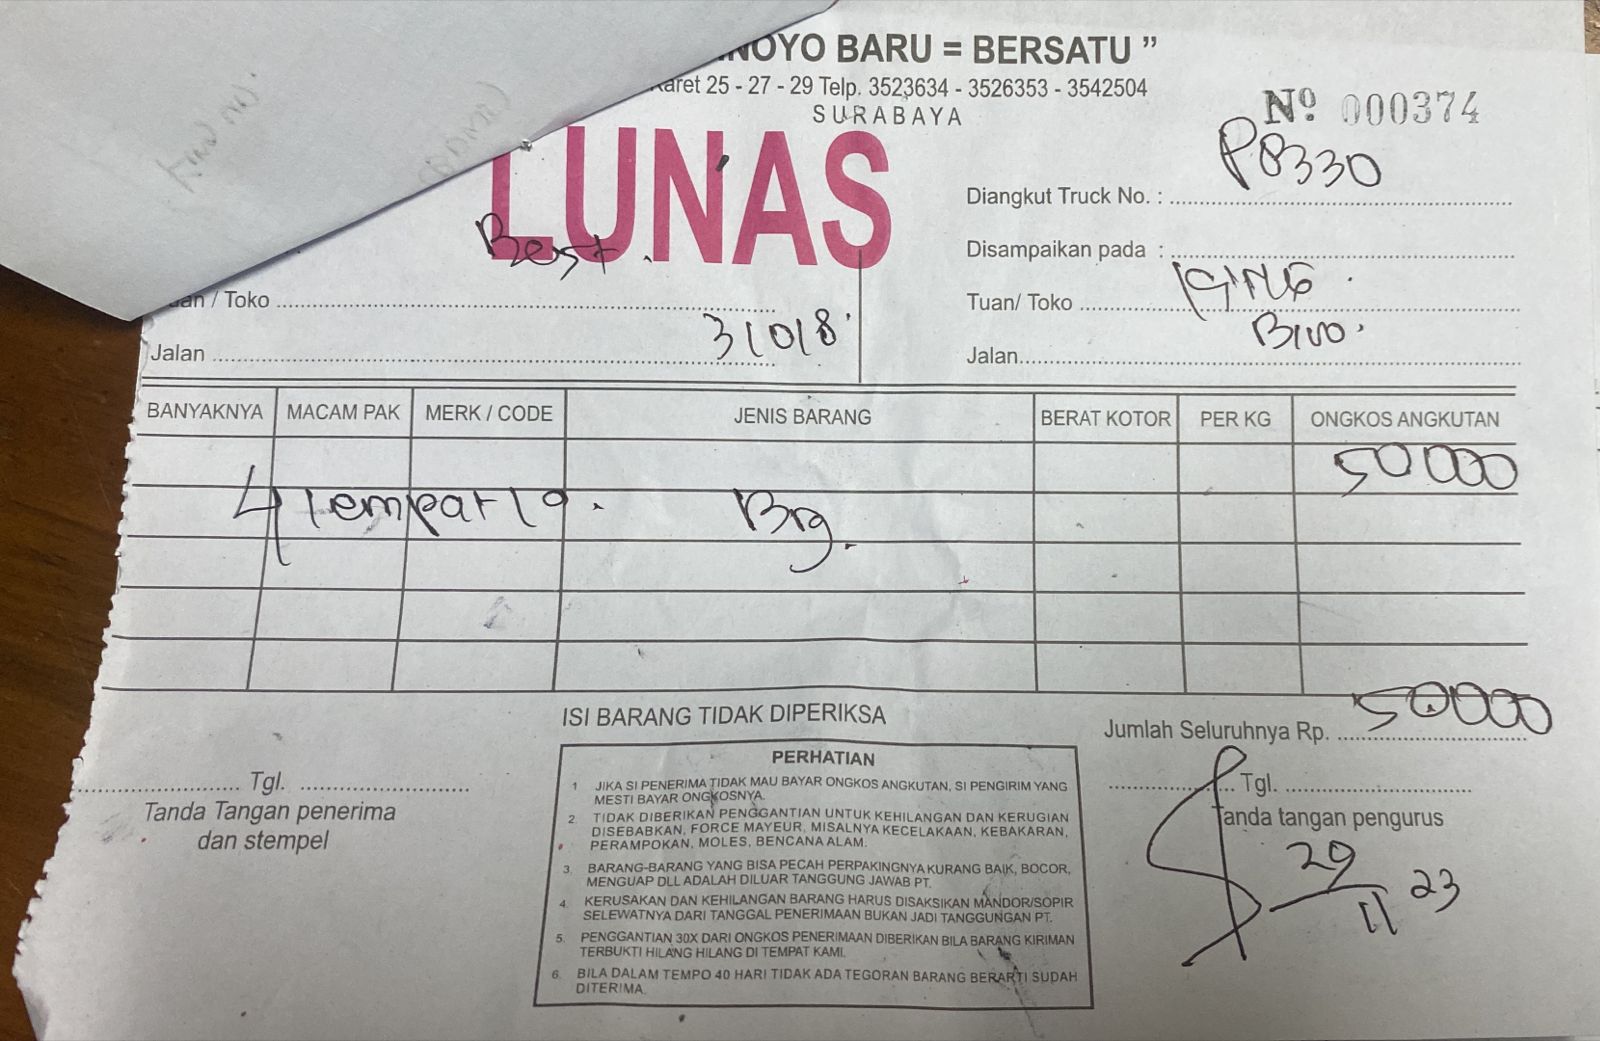 NOYO BARU = BERSATU ”
aret 25 - 27 - 29 Telp. 3523634 - 3526353 - 3542504
SURABAYA
Nº 000374
LUNAS
P8330
Diangkut Truck No. :
Best.
Disampaikan pada :
an / Toko
Tuan/ Toko
31018
Jalan
Jalan
BANYAKNYA MACAM PAK MERK / CODE JENIS BARANG BERAT KOTOR PER KG ONGKOS ANGKUTAN
50000
4 Brg.
50000
ISI BARANG TIDAK DIPERIKSA
Jumlah Seluruhnya Rp.
PERHATIAN
1 JIKA SI PENERIMA TIDAK MAU BAYAR ONGKOS ANGKUTAN, SI PENGIRIM YANG
MESTI BAYAR ONGKOSNYA.
2. TIDAK DIBERIKAN PENGGANTIAN UNTUK KEHILANGAN DAN KERUGIAN
DISEBABKAN, FORCE MAYEUR, MISALNYA KECELAKAAN, KEBAKARAN,
PERAMPOKAN, MOLES, BENCANA ALAM.
3. BARANG-BARANG YANG BISA PECAH PERPAKINGNYA KURANG BAIK, BOCOR,
MENGUAP DLL ADALAH DILUAR TANGGUNG JAWAB PT.
4. KERUSAKAN DAN KEHILANGAN BARANG HARUS DISAKSIKAN MANDOR/SOPIR
SELEWATNYA DARI TANGGAL PENERIMAAN BUKAN JADI TANGGUNGAN PT.
5. PENGGANTIAN 30X DARI ONGKOS PENERIMAAN DIBERIKAN BILA BARANG KIRIMAN
TERBUKTI HILANG HILANG DI TEMPAT KAMI.
6. BILA DALAM TEMPO 40 HARI TIDAK ADA TEGORAN BARANG BERARTI SUDAH
DITERIMA.
Tgl.
Tanda Tangan penerima
dan stempel
Tgl.
Tanda tangan pengurus
29
11 23